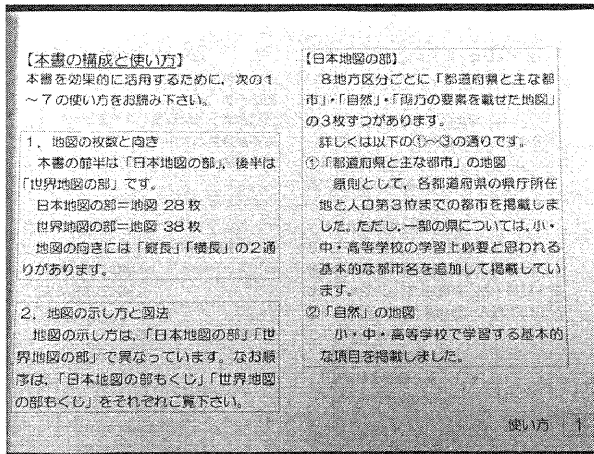 【本書の構成と使い方】
本書を効果的に活用するために，次の1
～7の使い方をお読み下さい。
1．地図の枚数と向き
本書の前半は「日本地図の部」，後半は
「世界地図の部」です。
日本地図の部＝地図 28 枚
世界地図の部＝地図 38 枚
地図の向きには「縦長」「横長」の2通
りがあります。
2．地図の示し方と図法
地図の示し方は，「日本地図の部」「世
界地図の部」で異なっています。なお順
序は，「日本地図の部もくじ」「世界地図
の部もくじ」をそれぞれご覧下さい。
【日本地図の部】
8地方区分ごとに「都道府県と主な都
市」・「自然」・「両方の要素を載せた地図」
の3枚ずつがあります。
詳しくは以下の①～③の通りです。
①「都道府県と主な都市」の地図
原則として，各都道府県の県庁所在
地と人口第3位までの都市を掲載しま
した。ただし，一部の県については，小・
中・高等学校の学習上必要と思われる
基本的な都市名を追加して掲載してい
ます。
②「自然」の地図
小・中・高等学校で学習する基本的
な項目を掲載しました。
使い方 1